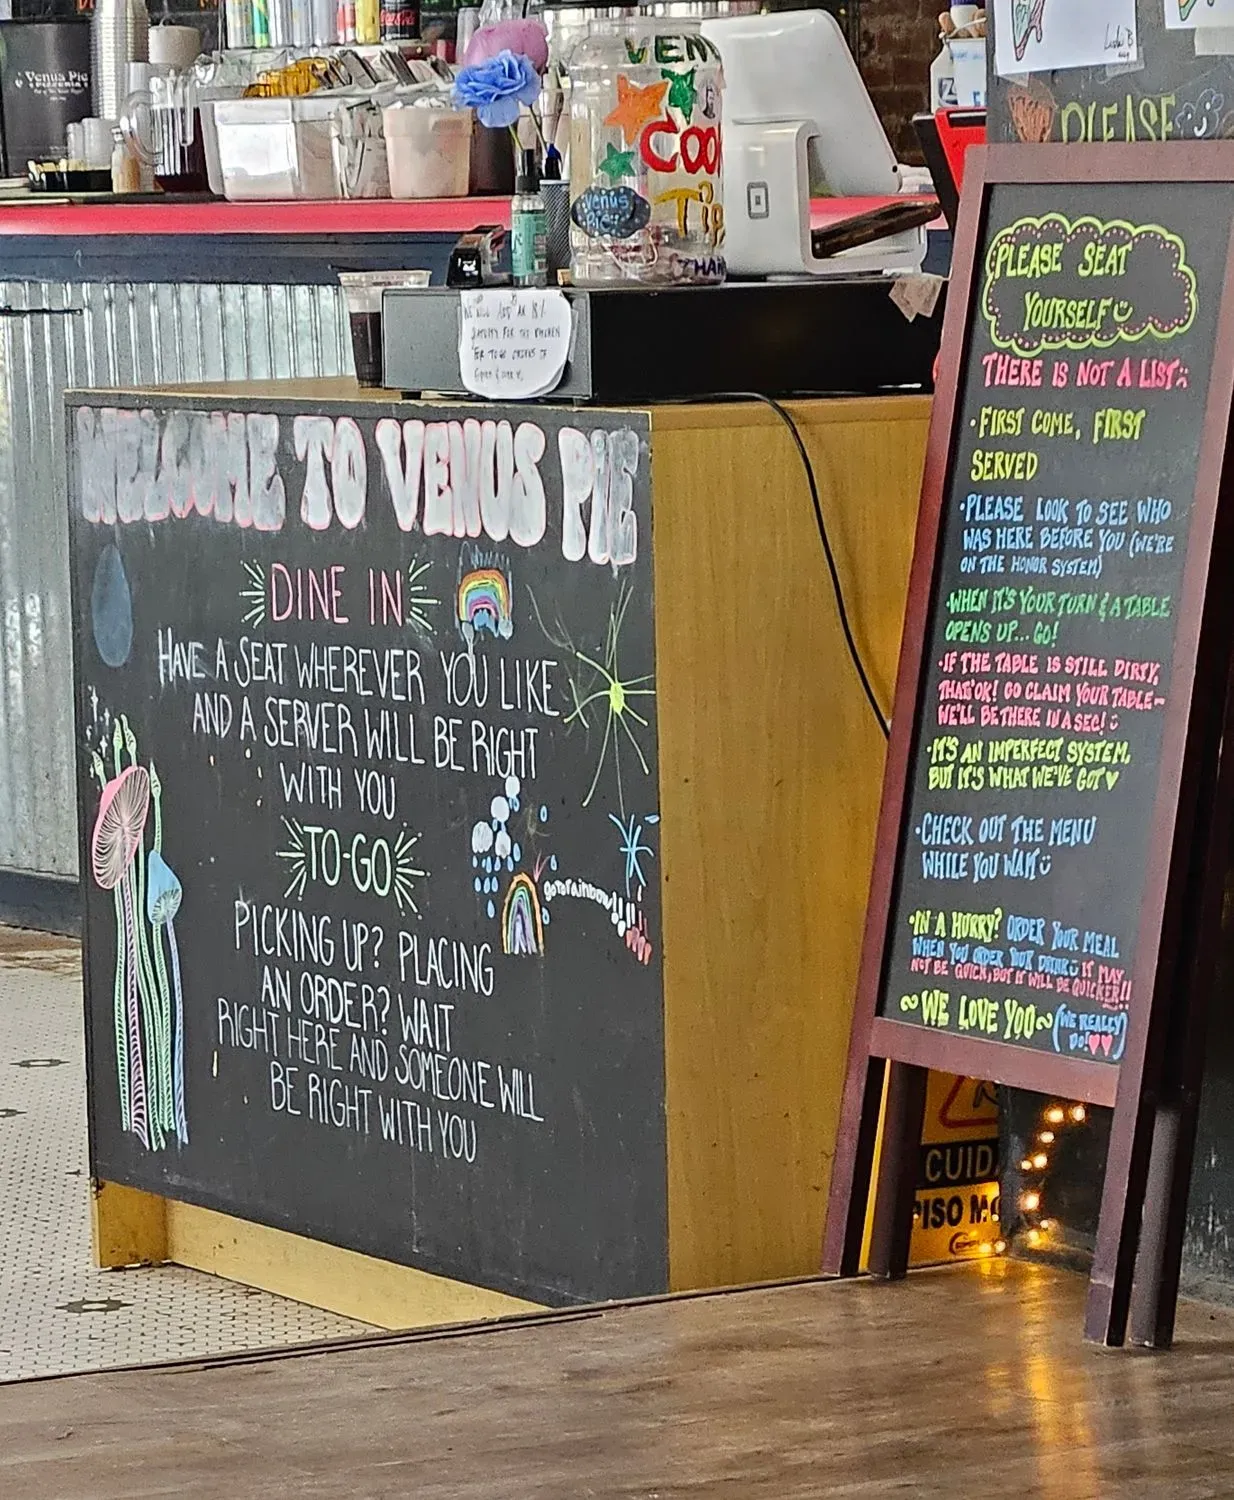 Venus Pie
PIZZERIA
VEN
COO
Tip
Venus
THAN
WE WILL ADD AN 18%
GRATUITY FOR THE KITCHEN
FOR TO GO ORDERS OF
WELCOME TO VENUS PIE
DINE IN
HAVE A SEAT WHEREVER YOU LIKE
AND A SERVER WILL BE RIGHT
WITH YOU
TO-GO
PICKING UP? PLACING
AN ORDER? WAIT
RIGHT HERE AND SOMEONE WILL
BE RIGHT WITH YOU
gotorainbow!!!
PLEASE
PLEASE SEAT
YOURSELF
THERE IS NOT A LIST
•FIRST COME, FIRST
SERVED
•PLEASE LOOK TO SEE WHO
WAS HERE BEFORE YOU (WE'RE
ON THE HONOR SYSTEM)
•WHEN IT'S YOUR TURN & A TABLE
OPENS UP... GO!
•IF THE TABLE IS STILL DIRTY,
THAT'S OK! GO CLAIM YOUR TABLE–
WE'LL BE THERE IN A SEC!
•IT'S AN IMPERFECT SYSTEM,
BUT IT'S WHAT WE'VE GOT ♥
•CHECK OUT THE MENU
WHILE YOU WAIT
•IN A HURRY? ORDER YOUR MEAL
WHEN YOU ORDER YOUR DRINK IT MAY
NOT BE QUICK, BUT IT WILL BE QUICKER!!
~WE LOVE YOU~ (WE REALLY
DO! ♥♥)
CUID
PISO MO